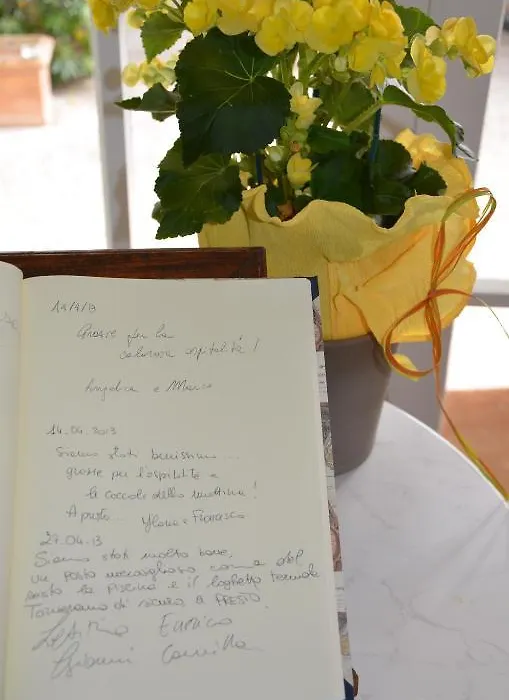 14/4/13
Grazie per la
calorosa ospitalità!
Angelica e Marco
14.04.2013
Siamo stati benissimo....
grazie per l'ospitalità e
le coccole della mattina!
A presto... Ylenia e Francesco
27.04.13
Siamo stati molto bene,
un posto meraviglioso come del
resto la piscina e il laghetto termale
Torneremo di sicuro A PRESTO.
Letizia Enrico
Gianni Camilla